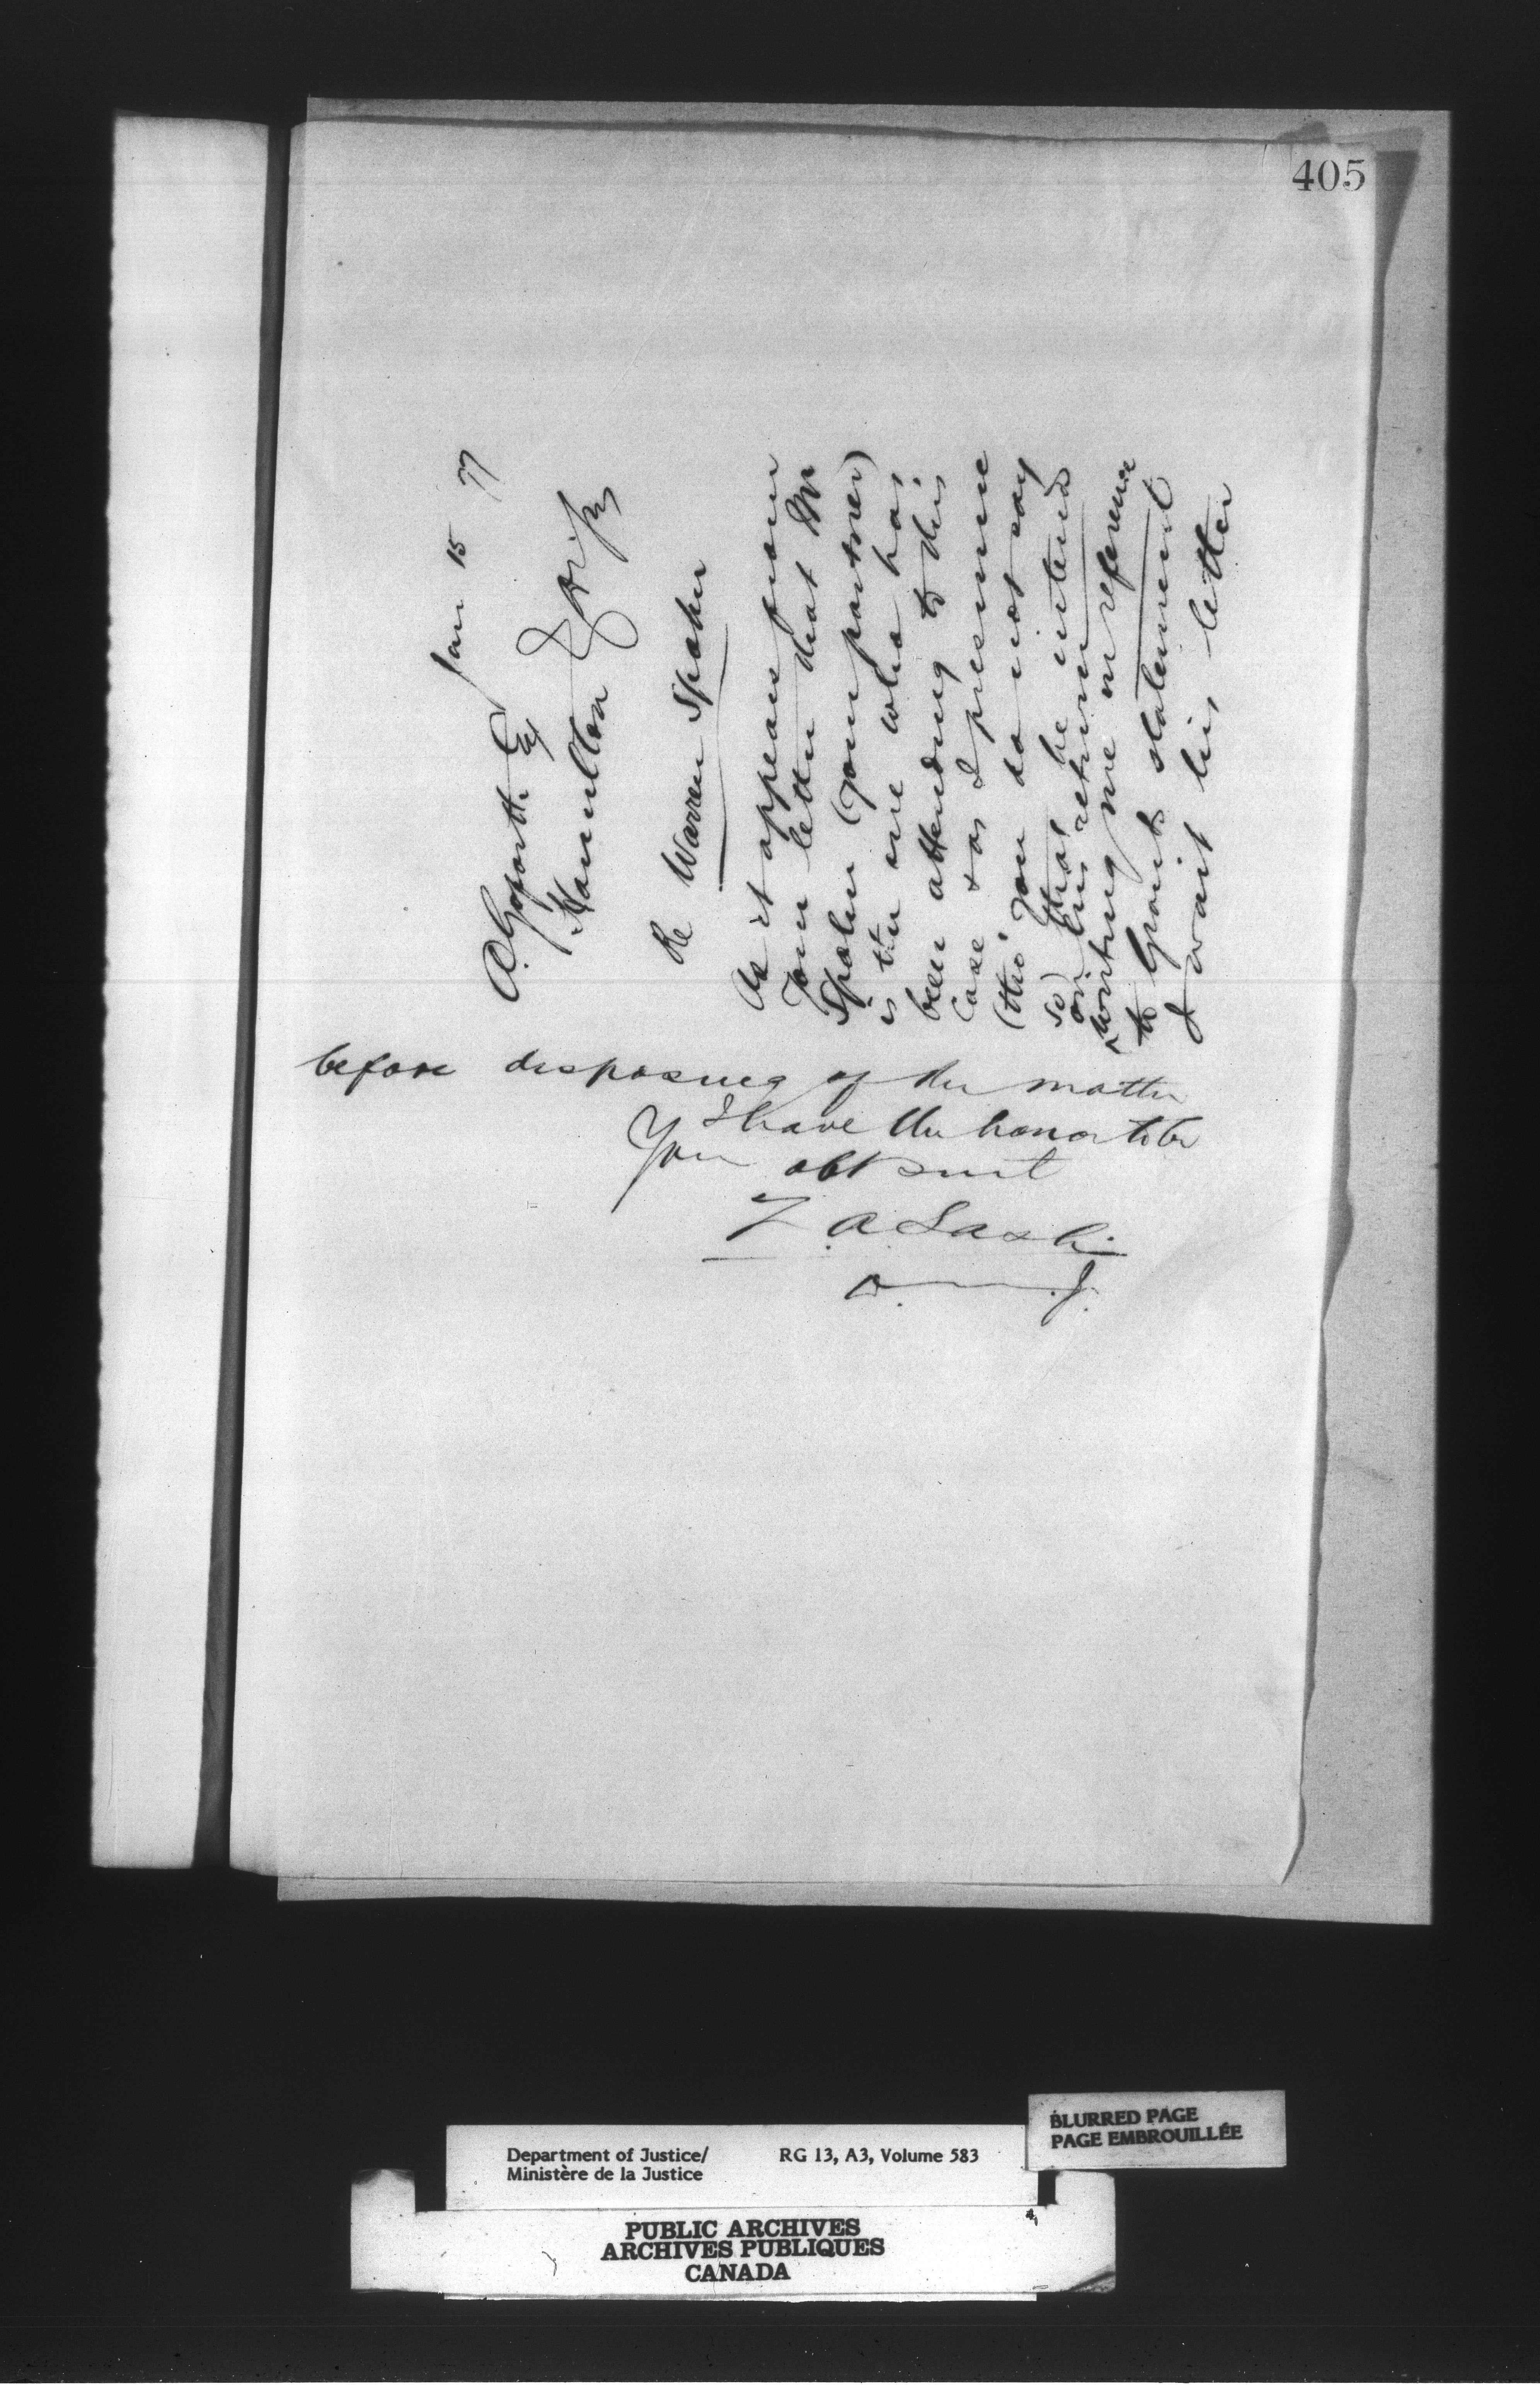 405
Jan 15 77
A. Goforth Esq
Hamilton
Re Warren Spohn
As it appears from
your letter that Mr
Spohn (your partner)
is the one who has
been attending to this
case & as I presume
(tho' you do not say
so) that he intends
on his return
writing me in reference
to Grant's statement
I await his letter
before disposing of the matter
I have the honor to be
Your obt Servt
Z A Lash
D. M. J.
BLURRED PAGE
PAGE EMBROUILLÉE
Department of Justice/
Ministère de la Justice
RG 13, A3, Volume 583
PUBLIC ARCHIVES
ARCHIVES PUBLIQUES
CANADA